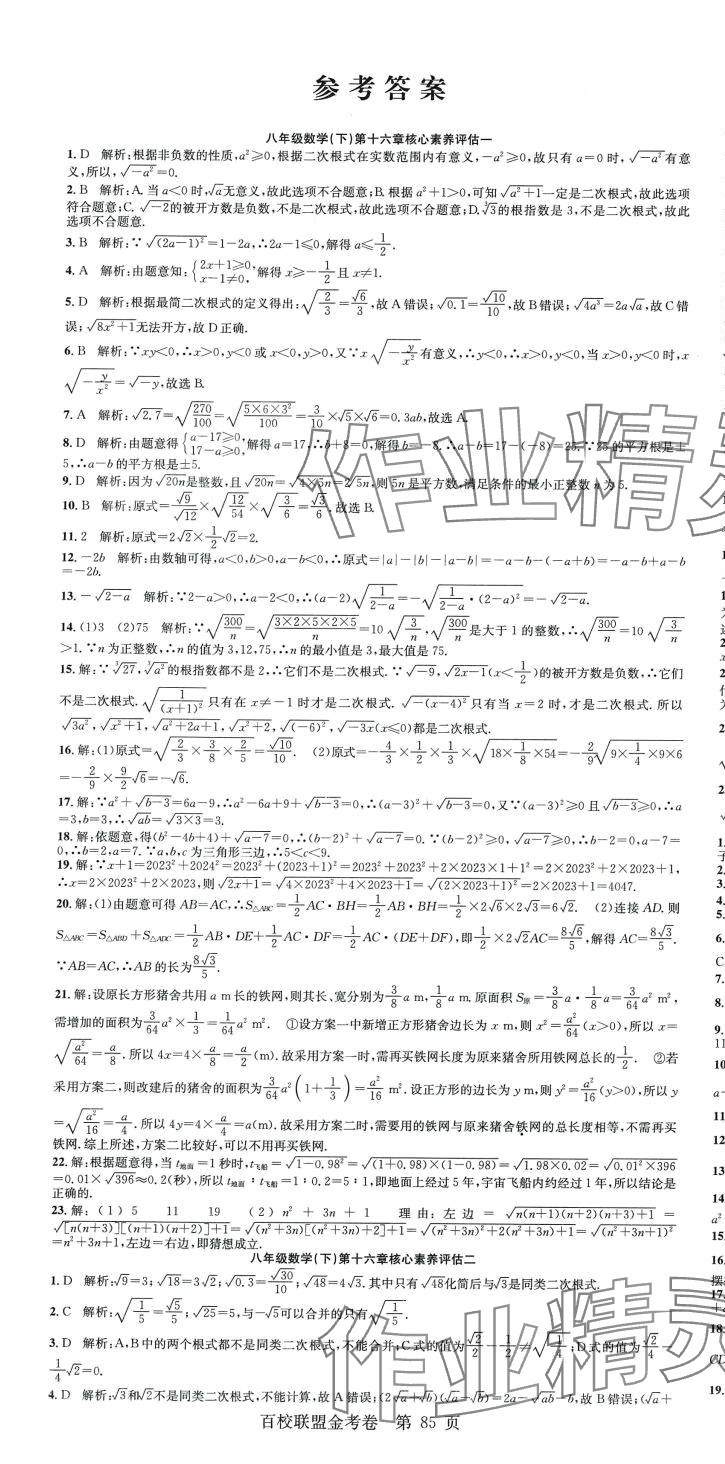 参考答案
八年级数学(下)第十六章核心素养评估一
1. D 解析:根据非负数的性质,a²≥0,根据二次根式在实数范围内有意义,-a²≥0,故只有 a=0 时,√(-a²)有意
义,所以,√(-a²)=0.
2. B 解析:A. 当 a<0 时,√a无意义,故此选项不合题意;B. 根据 a²+1>0,可知√(a²+1)一定是二次根式,故此选项
符合题意;C. √(-2)的被开方数是负数,不是二次根式,故此选项不合题意;D. ∛3的根指数是 3,不是二次根式,故此
选项不合题意.
3. B 解析:∵√((2a-1)²)=1-2a,∴2a-1≤0,解得 a≤1/2.
4. A 解析:由题意知:{2x+1≥0, x-1≠0, 解得 x≥-1/2 且 x≠1.
5. D 解析:根据最简二次根式的定义得出:√(2/3)=√6/3,故 A 错误;√0.1=√10/10,故 B 错误;√(4a³)=2a√a,故 C 错
误;√(8x²+1)无法开方,故 D 正确.
6. B 解析:∵xy<0,∴x>0,y<0 或 x<0,y>0,又∵x√(-y/x²)有意义,∴y<0,∴x>0,y<0,当 x>0,y<0 时,x
√(-y/x²)=√(-y),故选 B.
7. A 解析:√2.7=√(270/100)=√(5×6×3²/100)=3/10×√5×√6=0.3ab,故选 A.
8. D 解析:由题意得{a-17≥0, 17-a≥0, 解得 a=17,∴b+8=0,解得 b=-8.∴a-b=17-(-8)=25.∵25 的平方根是±
5,∴a-b 的平方根是±5.
9. D 解析:因为√(20n)是整数,且√(20n)=√(4×5n)=2√(5n),则 5n 是平方数,满足条件的最小正整数 n 为 5.
10. B 解析:原式=√9/√12×√(12/54)×√(3/6)=√3/6,故选 B.
11. 2 解析:原式=2√2×1/2√2=2.
12. -2b 解析:由数轴可得,a<0,b>0,a-b<0,∴原式=|a|-|b|-|a-b|=-a-b-(-a+b)=-a-b+a-b
=-2b.
13. -√(2-a) 解析:∵2-a>0,∴a-2<0,∴(a-2)√(1/(2-a))=-√(1/(2-a)·(2-a)²)=-√(2-a).
14. (1)3 (2)75 解析:∵√(300/n)=√(3×2×5×2×5/n)=10√(3/n),√(300/n)是大于 1 的整数,∴√(300/n)=10√(3/n)
>1.∵n 为正整数,∴n 的值为 3,12,75,∴n 的最小值是 3,最大值是 75.
15. 解:∵∛27,∛(a²)的根指数都不是 2,∴它们不是二次根式.∵√(-9),√(2x-1)(x<1/2)的被开方数是负数,∴它们
不是二次根式.√(1/(x+1)²)只有在 x≠-1 时才是二次根式.√(-(x-4)²)只有当 x=2 时,才是二次根式.所以
√(3a²),√(x²+1),√(a²+2a+1),√(x²+2),√((-6)²),√(-3x)(x≤0)都是二次根式.
16. 解:(1)原式=√(2/3×3/8×2/5)=√10/10. (2)原式=-4/3×1/2×1/3×√(18×1/8×54)=-2/9√(9×1/4×9×6)
=-2/9×9/2√6=-√6.
17. 解:∵a²+√(b-3)=6a-9,∴a²-6a+9+√(b-3)=0,∴(a-3)²+√(b-3)=0,又∵(a-3)²≥0 且√(b-3)≥0,∴a
=3,b=3,∴√(ab)=√(3×3)=3.
18. 解:依题意,得(b²-4b+4)+√(a-7)=0,∴(b-2)²+√(a-7)=0.∵(b-2)²≥0,√(a-7)≥0,∴b-2=0,a-7=
0,∴b=2,a=7.∵a,b,c 为三角形三边,∴5<c<9.
19. 解:∵x+1=2023²+2024²=2023²+(2023+1)²=2023²+2023²+2×2023×1+1²=2×2023²+2×2023+1,
∴x=2×2023²+2×2023,则√(2x+1)=√(4×2023²+4×2023+1)=√((2×2023+1)²)=2×2023+1=4047.
20. 解:(1)由题意可得 AB=AC,∴S△ABC=1/2AC·BH=1/2AB·BH=1/2×2√6×2√3=6√2. (2)连接 AD.则
S△ABC=S△ABD+S△ADC=1/2AB·DE+1/2AC·DF=1/2AC·(DE+DF),即1/2×2√2AC=8√6/5,解得 AC=8√3/5.
∵AB=AC,∴AB 的长为8√3/5.
21. 解:设原长方形猪舍共用 a m 长的铁网,则其长、宽分别为3/8a m,1/8a m.原面积 S原=3/8a·1/8a=3/64a² m²,
需增加的面积为3/64a²×1/3=1/64a² m². ①设方案一中新增正方形猪舍边长为 x m,则 x²=a²/64(x>0),所以 x=
√(a²/64)=a/8.所以 4x=4×a/8=a/2(m).故采用方案一时,需再买铁网长度为原来猪舍所用铁网总长的1/2. ②若
采用方案二,则改建后的猪舍的面积为3/64a²(1+1/3)=a²/16 m².设正方形的边长为 y m,则 y²=a²/16(y>0),所以 y
=√(a²/16)=a/4.所以 4y=4×a/4=a(m).故采用方案二时,需要用的铁网与原来猪舍铁网的总长度相等,不需再买
铁网.综上所述,方案二比较好,可以不用再买铁网.
22. 解:根据题意得,当 t地面=1 秒时,t飞船=√(1-0.98²)=√((1+0.98)×(1-0.98))=√(1.98×0.02)=√(0.01²×396)
=0.01×√396≈0.2(秒),所以 t地面∶t飞船=1∶0.2=5∶1,即地面上经过 5 年,宇宙飞船内约经过 1 年,所以结论是
正确的.
23. 解:(1)5 11 19 (2)n²+3n+1 理由:左边=√(n(n+1)(n+2)(n+3)+1)=
√([n(n+3)][(n+1)(n+2)]+1)=√((n²+3n)[(n²+3n)+2]+1)=√((n²+3n)²+2(n²+3n)+1)=√((n²+3n+1)²)
=n²+3n+1,左边=右边,即猜想成立.
八年级数学(下)第十六章核心素养评估二
1. D 解析:√9=3;√18=3√2;√0.3=√30/10;√48=4√3.其中只有√48化简后与√3是同类二次根式.
2. C 解析:√(1/5)=√5/5;√25=5,与-√5可以合并的只有√(1/5).
3. D 解析:A,B 中的两个根式都不是同类二次根式,不能合并;C 式的值为√2/2-1/2≠√(1/4);D 式的值为√2/4-
1/4√2=0.
4. D 解析:√3和√2不是同类二次根式,不能计算,故 A 错误;(2√a+√b)(√a-√b)=2a-√(ab)-b,故 B 错误;(√a+
百校联盟金考卷 第 85 页
作业精灵
作业精灵